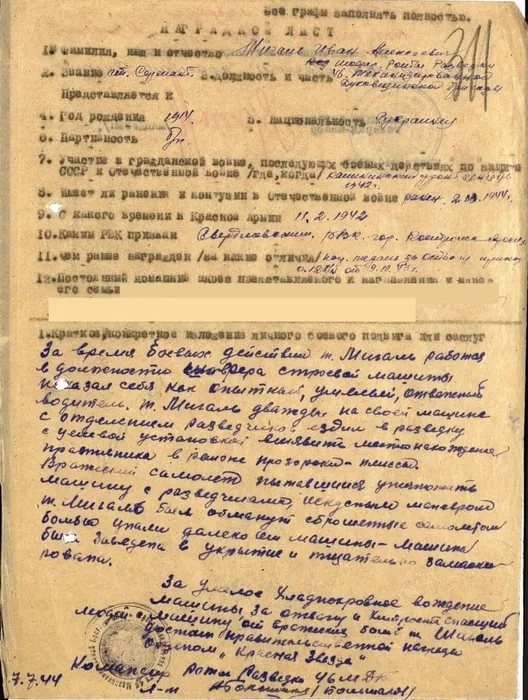 Все графы заполнять полностью.
НАГРАДНОЙ ЛИСТ
311
1. Фамилия, имя и отчество Мигаль Иван Алексеевич
2. Звание ст. Сержант 3. Должность и часть шофер роты разведки
46 Механизированной
Духовщинской бригады
Представляется к
4. Год рождения 1914 5. Национальность Украинец
6. Партийность б/п
7. Участие в гражданской войне, последующих боевых действиях по защите
СССР и отечественной войне /где, когда/ Калининский фронт
1942г.
8. Имеет ли ранения и контузии в Отечественной войне ранен 1944г.
9. С какого времени в Красной Армии 11.2.1942
10. Каким РВК призван Свердловским РВК гор.
11. Чем ранее награжден /за какие отличия/
от
12. Постоянный домашний адрес представляемого к награждению и адрес
его семьи
1. Краткое, конкретное изложение личного боевого подвига или заслуг
За время боевых действий т. Мигаль работая
в должности шофера строевой машины
показал себя как опытный, умелый, отважный
водитель. т. Мигаль дважды на своей машине
с отделением разведчиков ездил в разведку
с целевой установкой выявить местонахождение
противника в районе
Вражеский самолет пытавшийся уничтожить
машину с разведчиками, искусным маневром
т. Мигаль был обманут сброшенные самолетом
бомбы упали далеко от машины - машина
была заведена в укрытие и тщательно замаски-
рована.
За умелое хладнокровное вождение
машины за отвагу и спасший
людей и машину от вражеских бомб т. Мигаль
достоин правительственной награды
орденом "Красная Звезда"
Командир роты Разведки 46 МБр
7.7.44 л-т /Большаков/